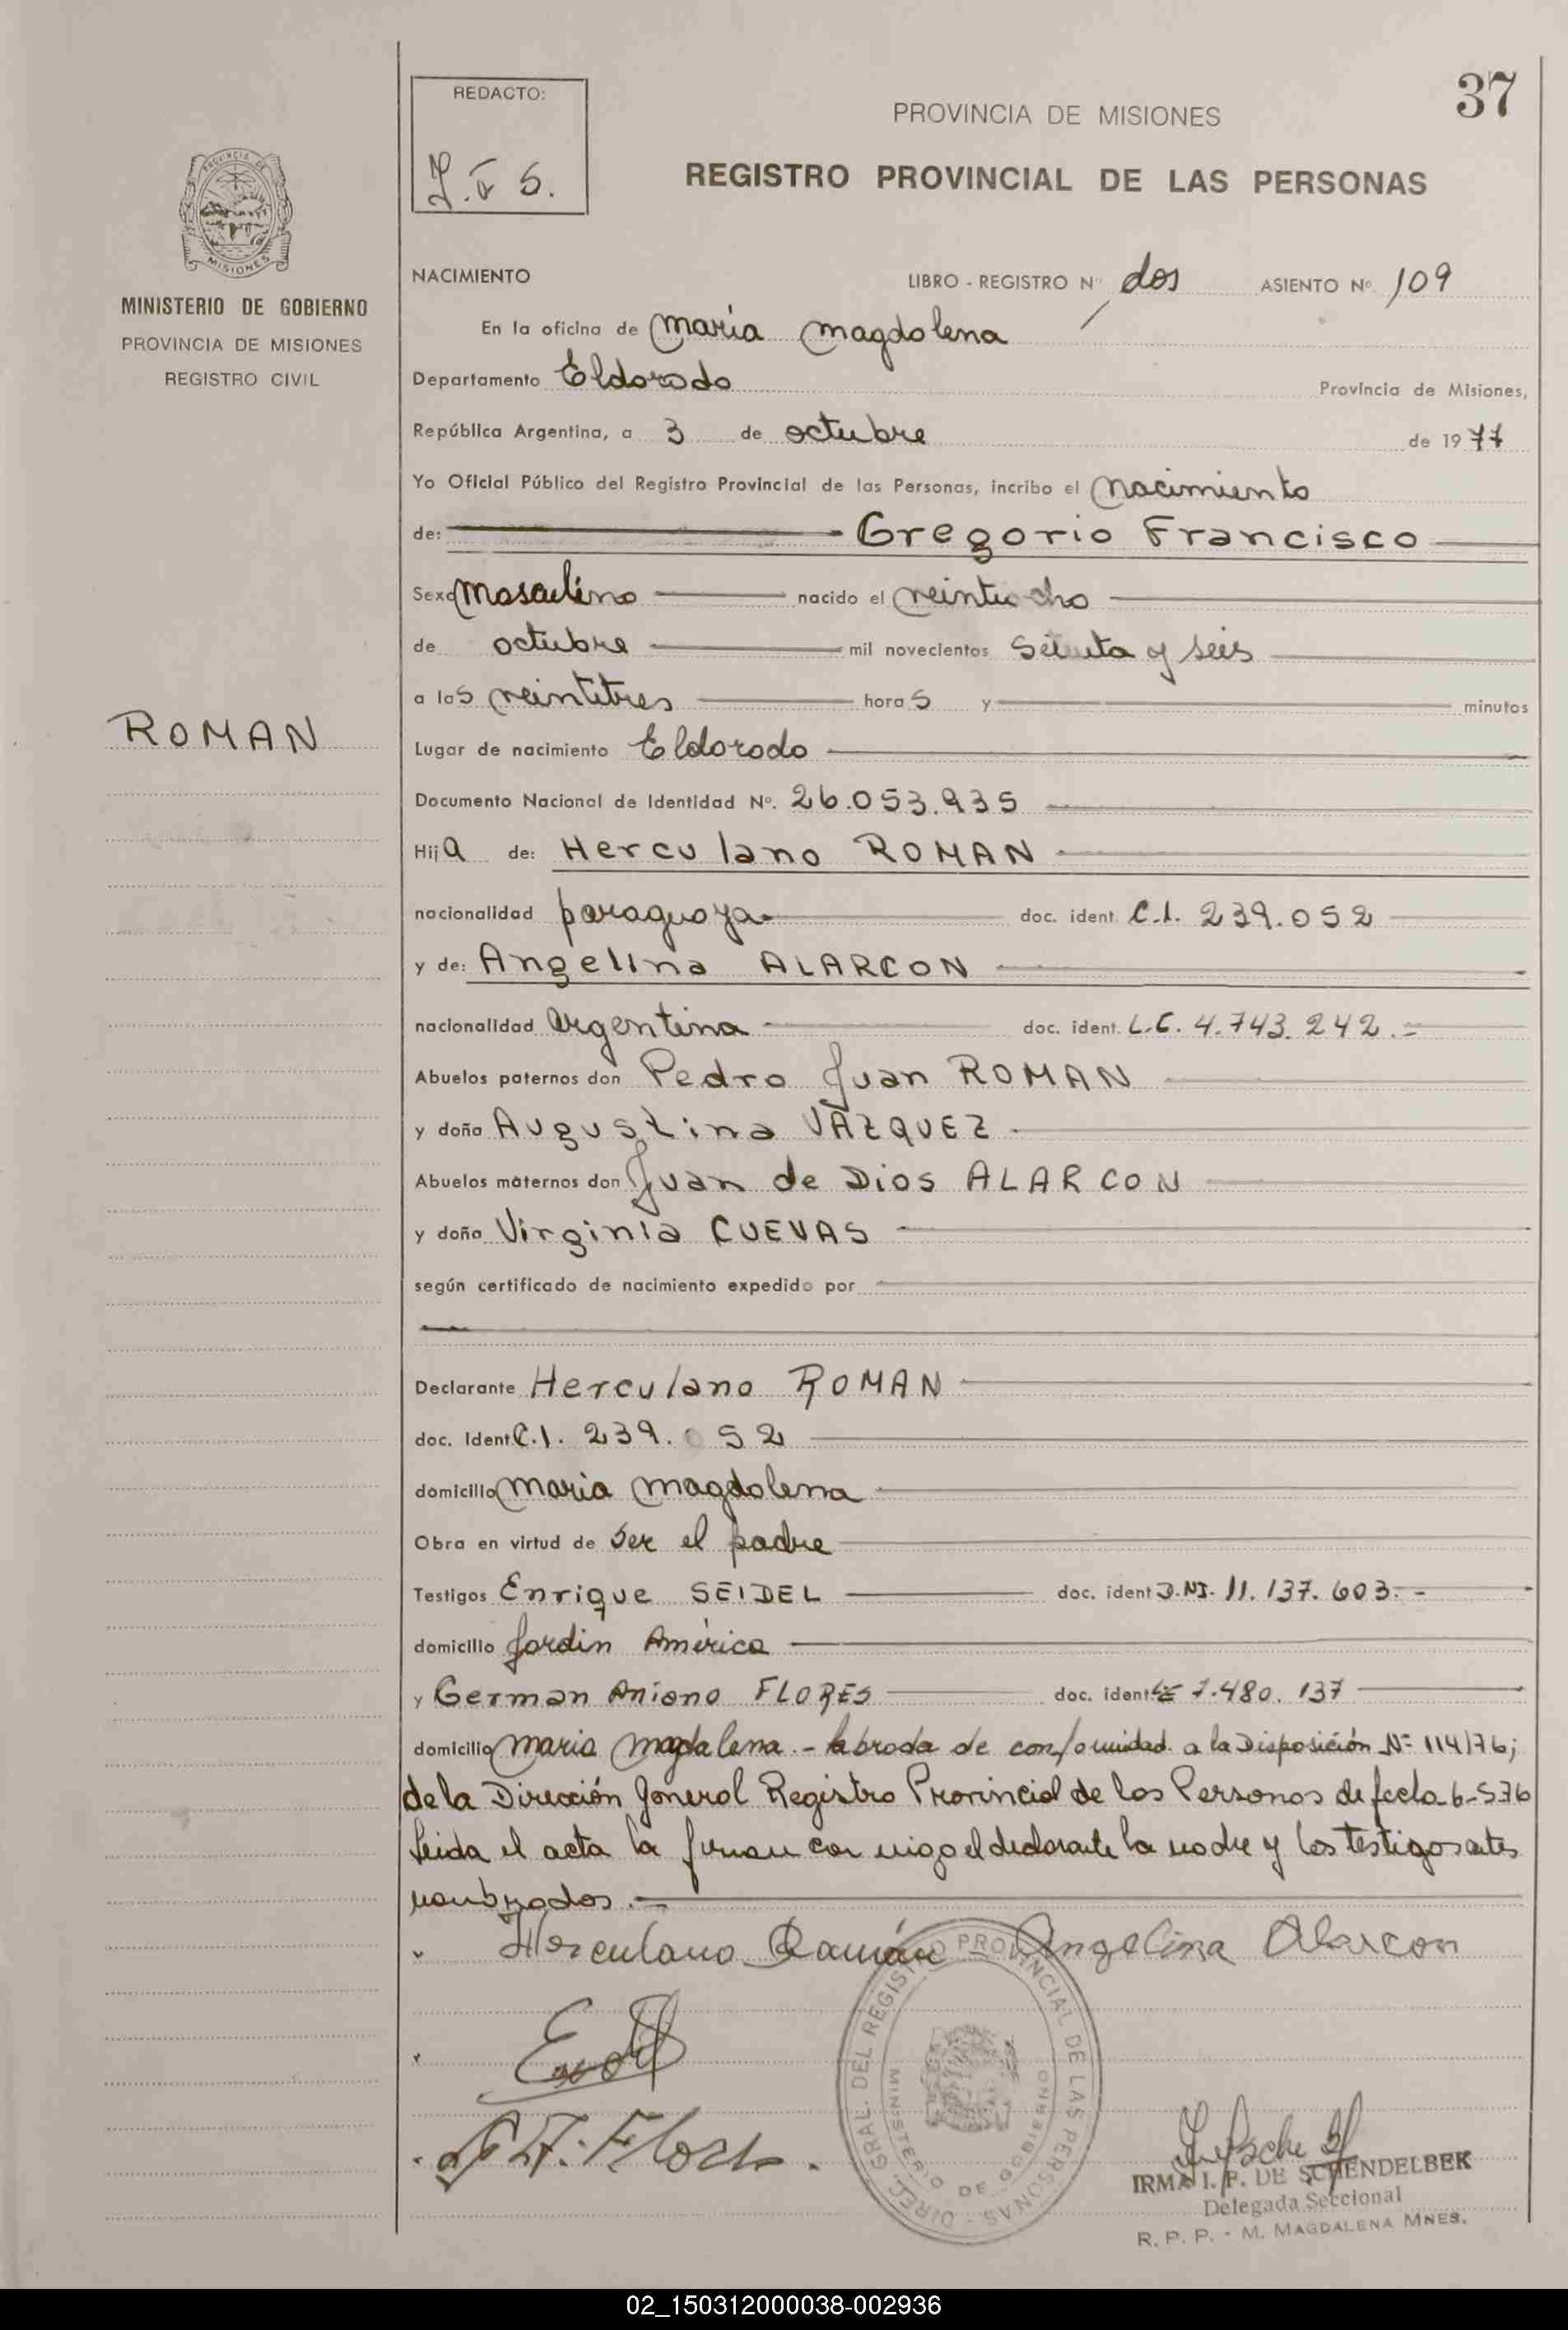 37
REDACTO:
PROVINCIA DE MISIONES
REGISTRO PROVINCIAL DE LAS PERSONAS
PROVINCIA DE
MISIONES
MINISTERIO DE GOBIERNO
PROVINCIA DE MISIONES
REGISTRO CIVIL
ROMAN
NACIMIENTO LIBRO - REGISTRO Nº dos ASIENTO Nº 109
En la oficina de Maria Magdalena
Departamento Eldorado Provincia de Misiones,
República Argentina, a 3 de octubre de 1977
Yo Oficial Público del Registro Provincial de las Personas, incribo el nacimiento
de: Gregorio Francisco
Sexo masculino nacido el veintiocho
de octubre mil novecientos setenta y seis
a las veintitres horas y minutos
Lugar de nacimiento Eldorado
Documento Nacional de Identidad Nº. 26.053.935
Hija de: Herculano ROMAN
nacionalidad paraguaya doc. ident. C.I. 239.052
y de: Angelina ALARCON
nacionalidad argentina doc. ident. L.C. 4.743.242.=
Abuelos paternos don Pedro Juan ROMAN
y doña Augustina VAZQUEZ
Abuelos maternos don Juan de Dios ALARCON
y doña Virginia CUEVAS
según certificado de nacimiento expedido por
Declarante Herculano ROMAN
doc. Ident C.I. 239.052
domicilio Maria Magdalena
Obra en virtud de ser el padre
Testigos Enrique SEIDEL doc. ident D.NI. 11.137.603.-
domicilio Jardin América
y German Aniano FLORES doc. ident LE 7.480.137
domicilio Maria Magdalena.- labrada de conformidad a la Disposición Nº 114/76;
de la Dirección General Registro Provincial de las Personas de fecha 6-5-76
leida el acta la firman con migo el declarante la madre y los testigos antes
nombrados.-
Herculano Román Angelina Alarcon
DIREC. GRAL. DEL REGISTRO PROVINCIAL DE LAS PERSONAS -
MINISTERIO DE GOBIERNO
A. Flores.
IRMA I. P. DE SCHENDELBEK
Delegada Seccional
R. P. P. - M. MAGDALENA MNES.
02_150312000038-002936